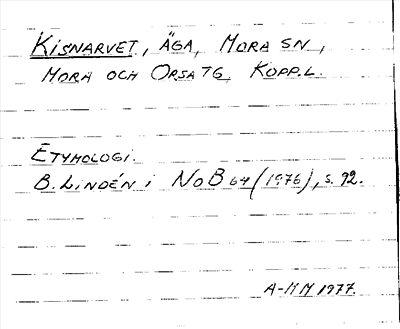 KISNARVET, ÄGA, MORA SN,
MORA OCH ORSA TG, KOPP.L.
ETYMOLOGI.
B. LINDÉN i NoB 64 (1976), s. 92.
A-MM 1977.